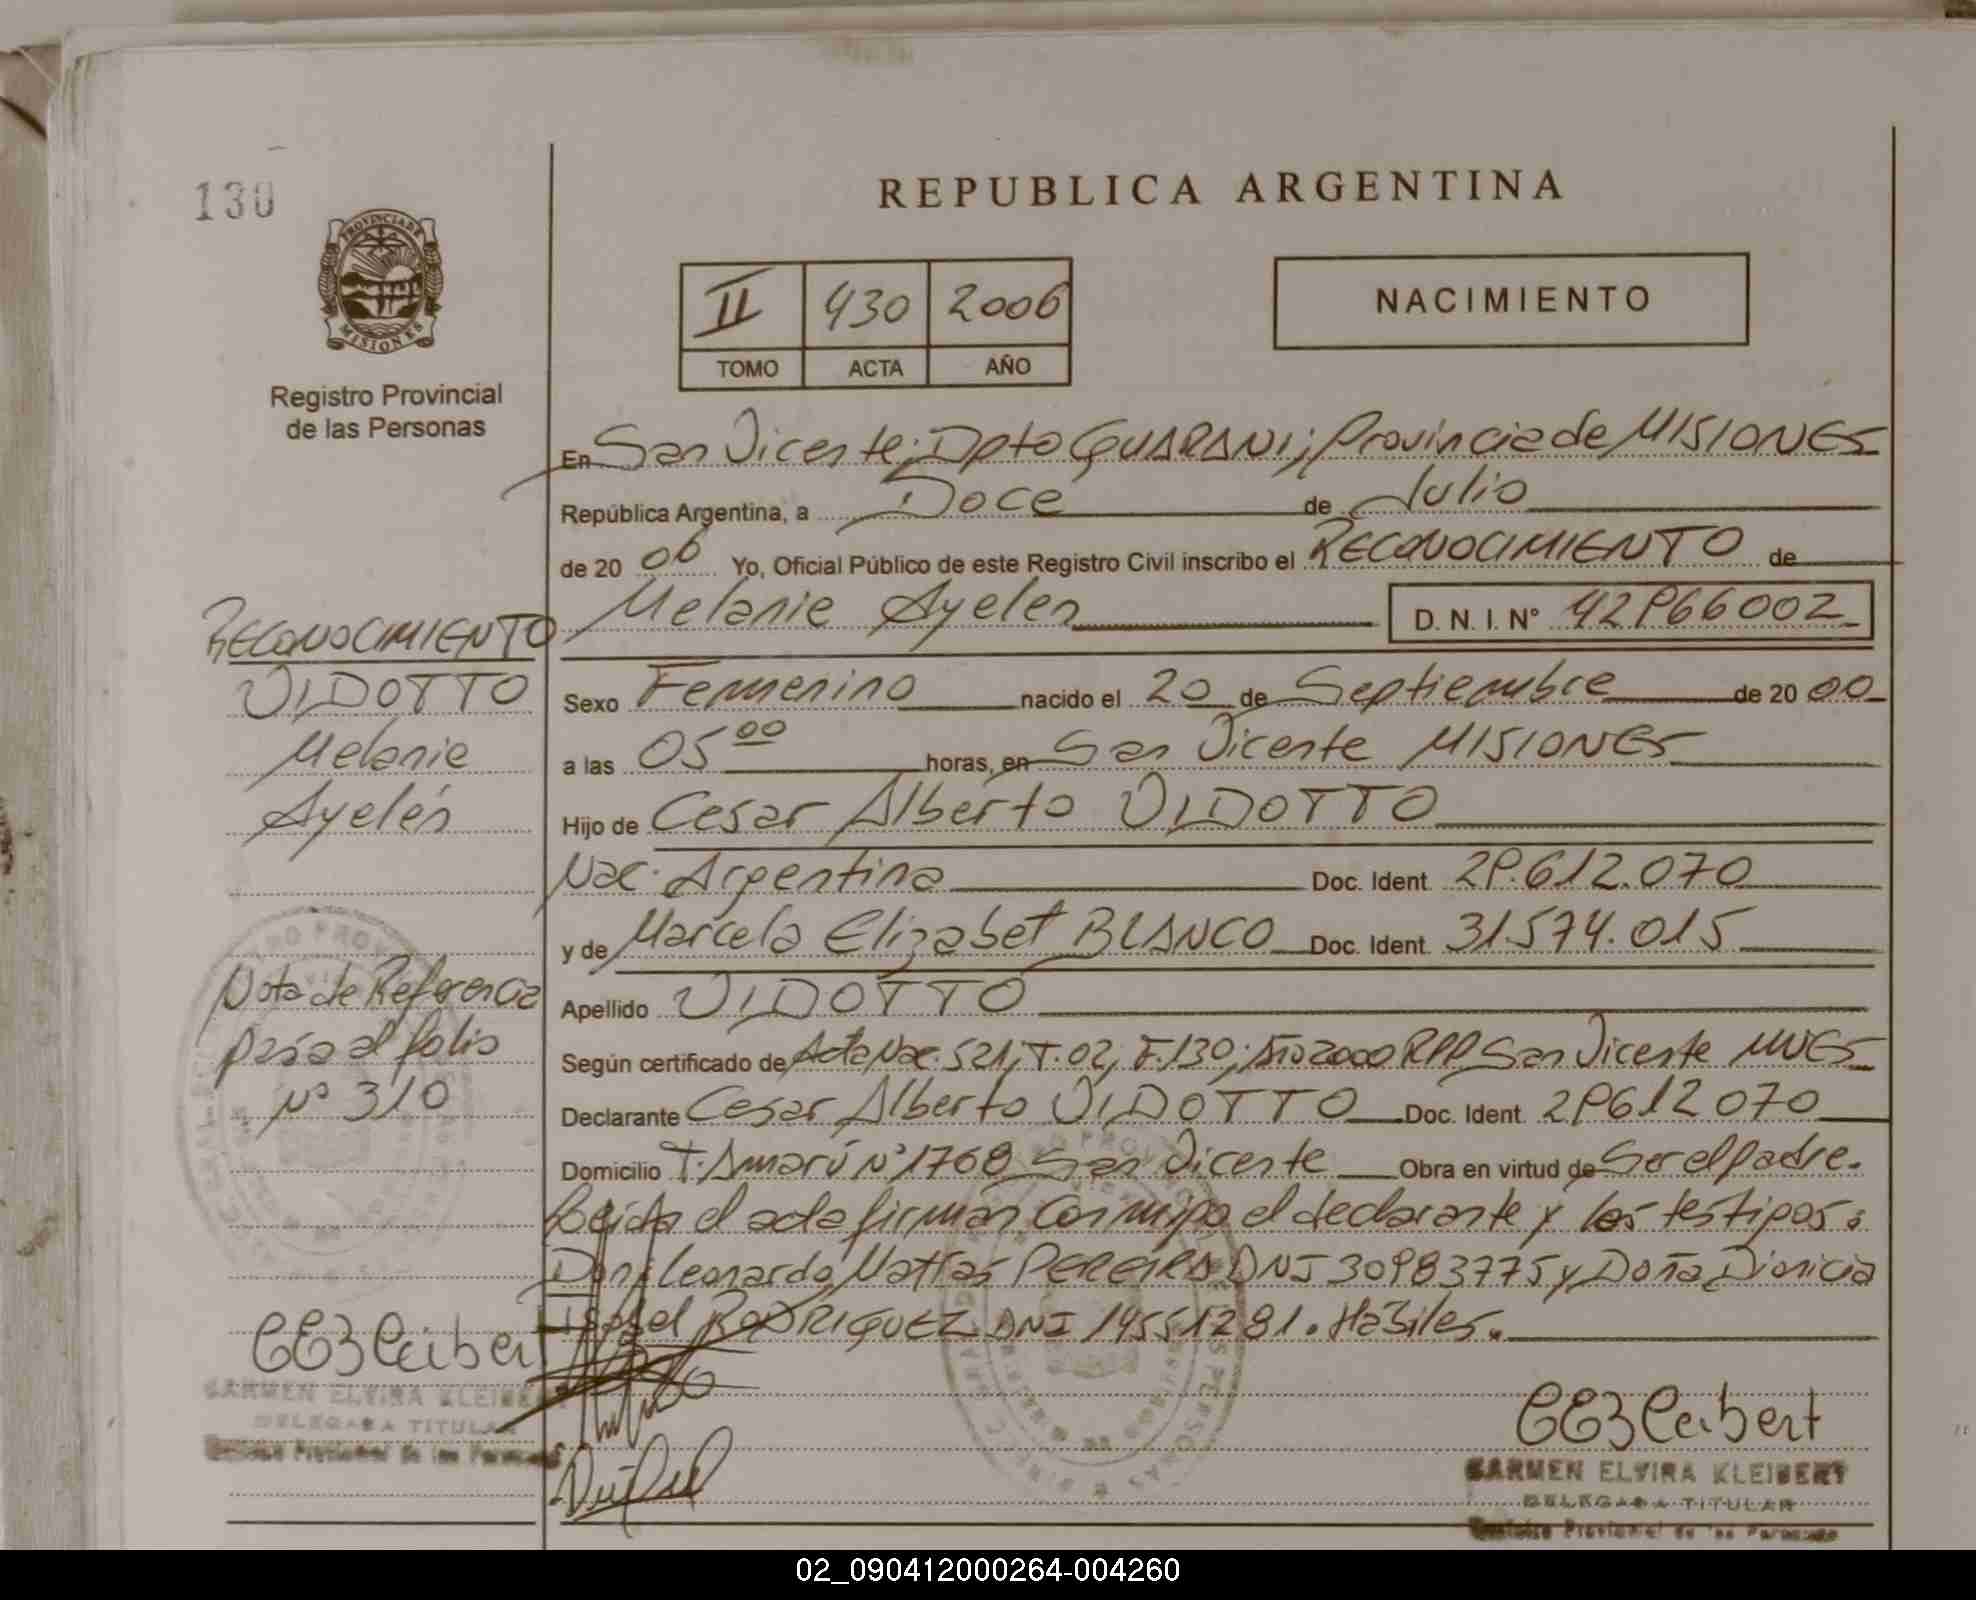 130
PROVINCIA DE
MISIONES
Registro Provincial
de las Personas
RECONOCIMIENTO
VIDOTTO
Melanie
Ayelén
Nota de Referencia
pasa al folio
Nº 310
CARMEN ELVIRA KLEIBERT
DELEGADA TITULAR
Registro Provincial de las Personas
REPUBLICA ARGENTINA
II 430 2006
TOMO ACTA AÑO
NACIMIENTO
En San Vicente; Dpto GUARANI; Provincia de MISIONES
República Argentina, a Doce de Julio
de 20 06 Yo, Oficial Público de este Registro Civil inscribo el RECONOCIMIENTO de
Melanie Ayelen D. N. I. Nº 42966002
Sexo Femenino nacido el 20 de Septiembre de 20 00
a las 05 00 horas, en San Vicente MISIONES
Hijo de Cesar Alberto VIDOTTO
Nac. Argentina Doc. Ident. 29.612.070
y de Marcela Elizabet BLANCO Doc. Ident. 31.574.015
Apellido VIDOTTO
Según certificado de Acta Nac. 521, T. 02, F. 130; Año 2000 RPP San Vicente MNES
Declarante Cesar Alberto VIDOTTO Doc. Ident. 29612070
Domicilio T. Amarú Nº 1768 San Vicente Obra en virtud de Ser el padre.
Leída el acta firman conmigo el declarante y los testigos:
Don Leonardo Matías PEREIRA DNI 30983775 y Doña Dionicia
Isabel RODRIGUEZ DNI 14551281. Habiles.
CEKleibert
CARMEN ELVIRA KLEIBERT
DELEGADA TITULAR
Registro Provincial de las Personas
02_090412000264-004260